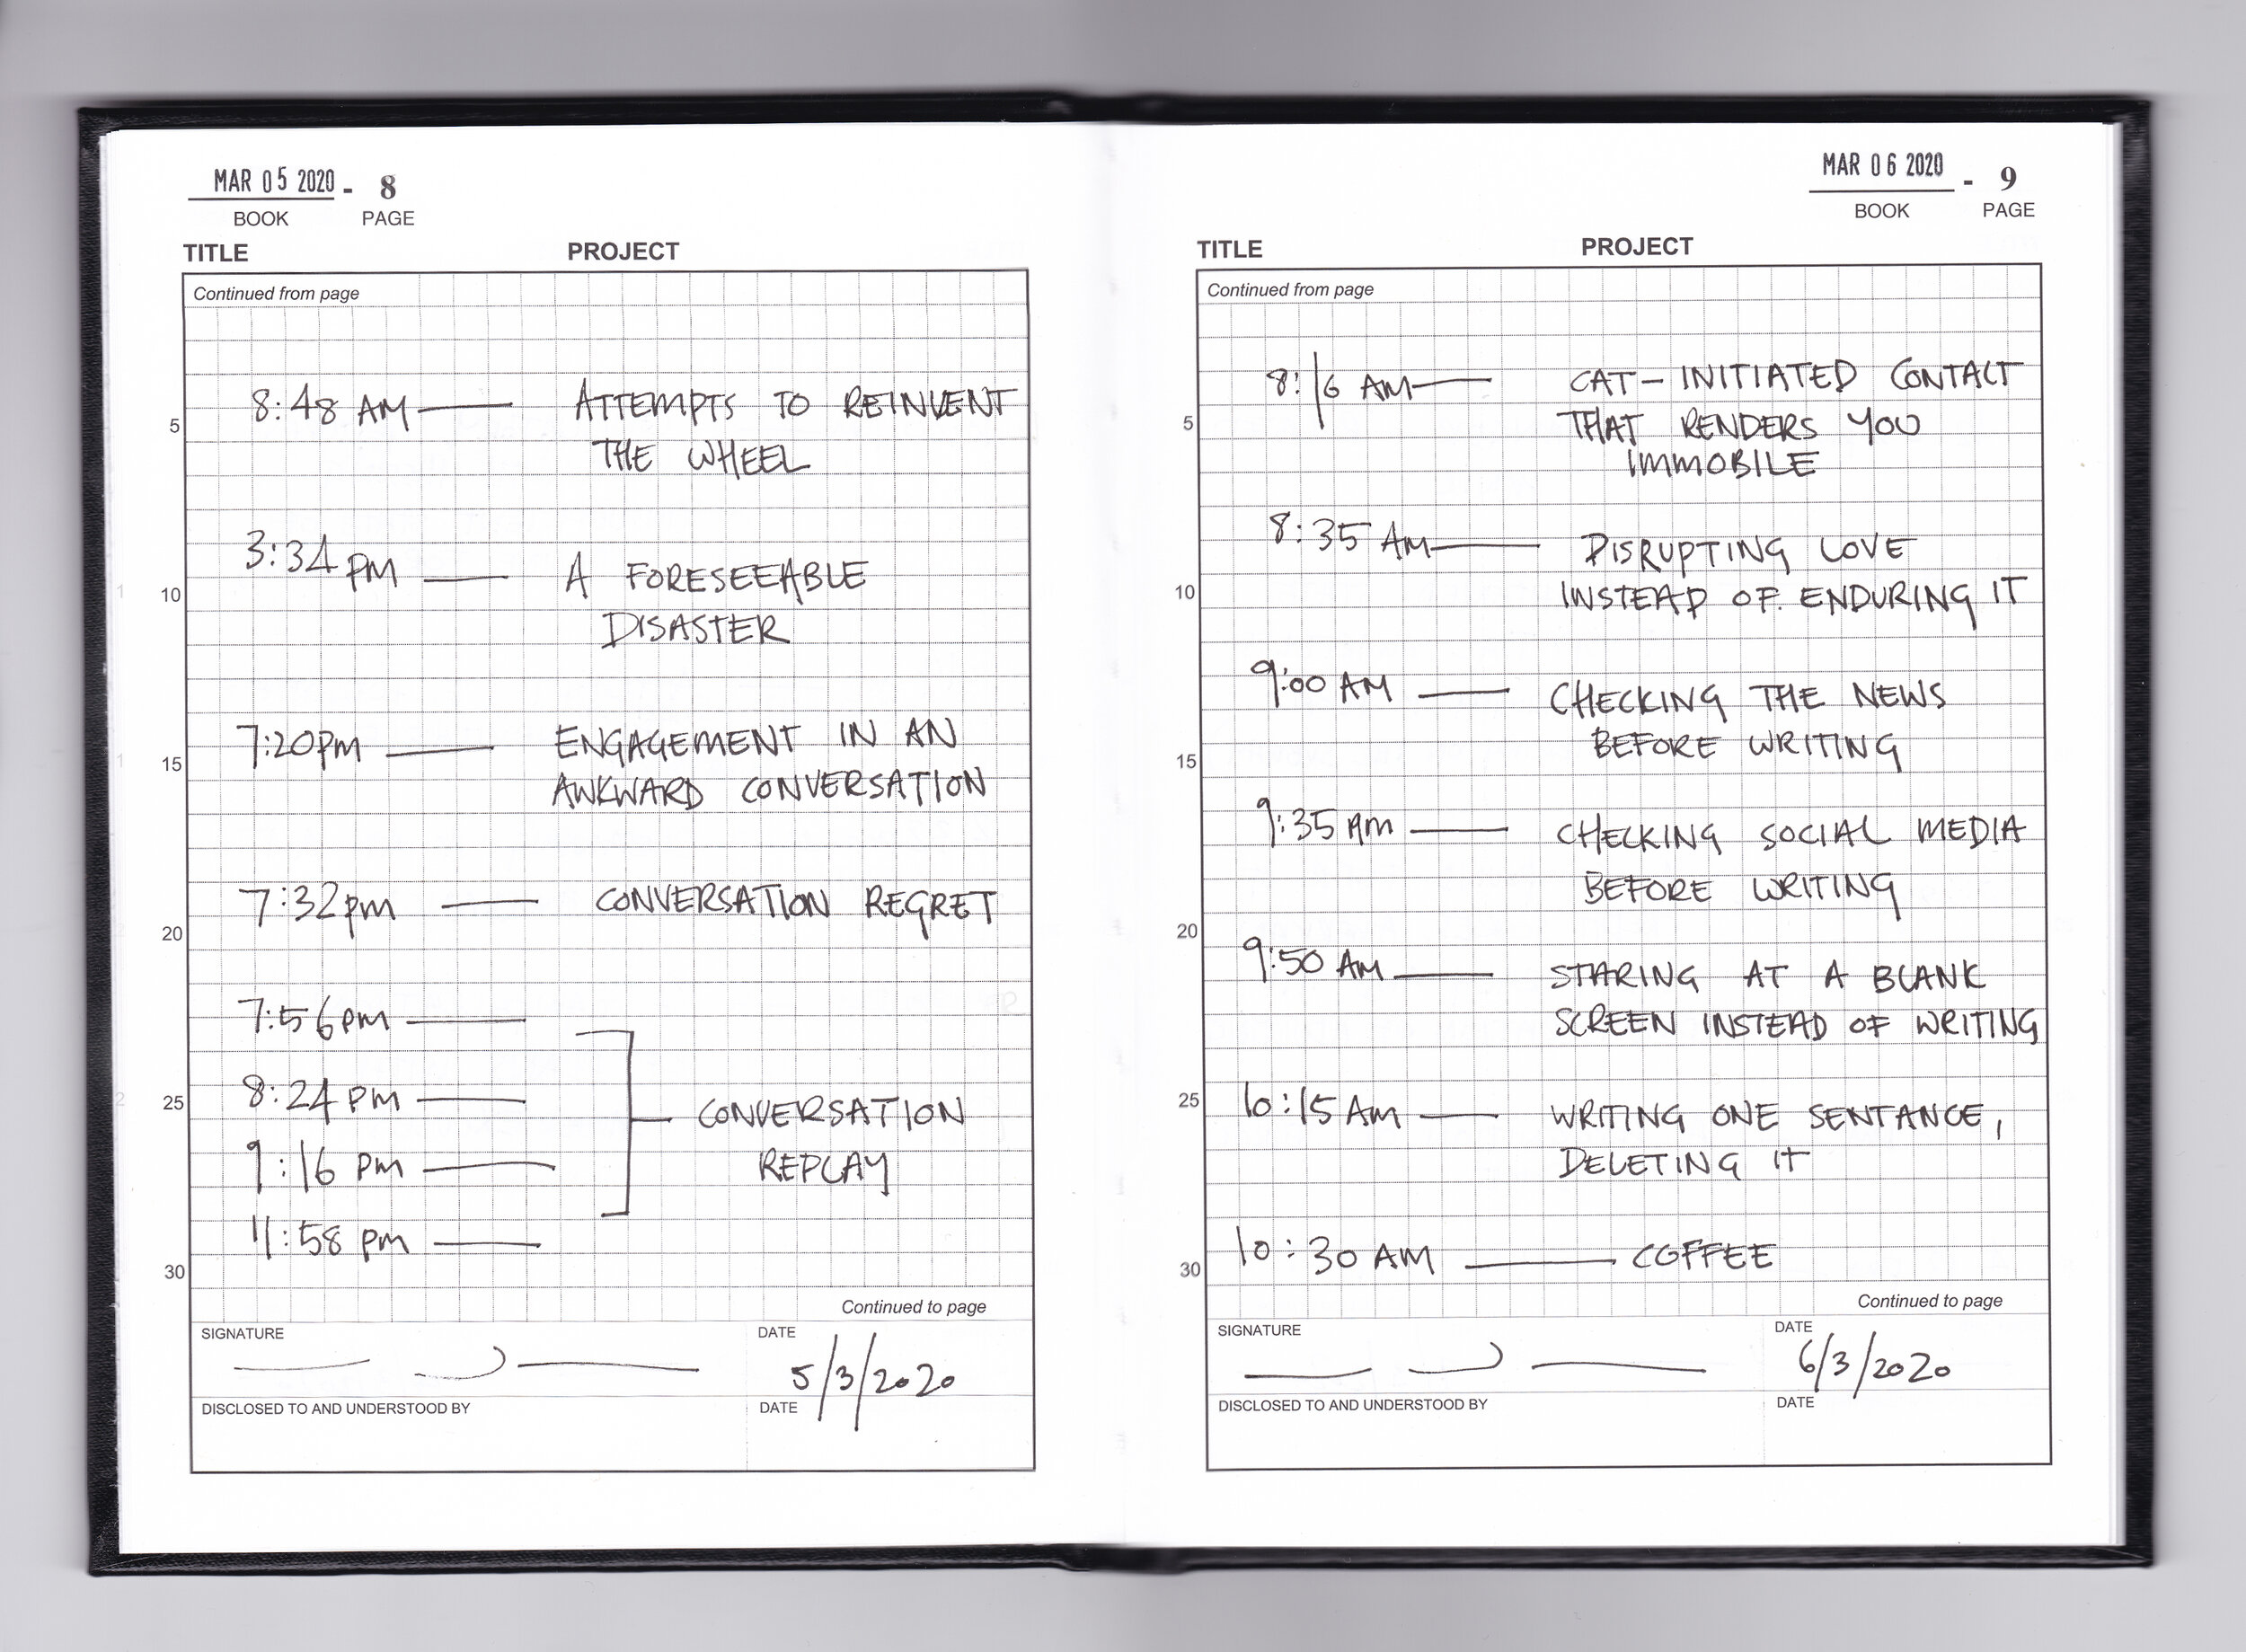 MAR 05 2020 - 8
BOOK PAGE
TITLE PROJECT
Continued from page
8:48 AM — ATTEMPTS TO REINVENT
THE WHEEL
5
3:34 PM — A FORESEEABLE
DISASTER
10
7:20pm — ENGAGEMENT IN AN
AWKWARD CONVERSATION
15
7:32pm — CONVERSATION REGRET
20
7:56pm —
8:24 PM —
25
CONVERSATION
REPLAY
9:16 pm —
11:58 pm —
30
Continued to page
SIGNATURE DATE
5/3/2020
DISCLOSED TO AND UNDERSTOOD BY DATE
MAR 06 2020 - 9
BOOK PAGE
TITLE PROJECT
Continued from page
8:16 AM — CAT-INITIATED CONTACT
THAT RENDERS YOU
IMMOBILE
5
8:35 AM — DISRUPTING LOVE
INSTEAD OF ENDURING IT
10
9:00 AM — CHECKING THE NEWS
BEFORE WRITING
15
9:35 AM — CHECKING SOCIAL MEDIA
BEFORE WRITING
20
9:50 AM — STARING AT A BLANK
SCREEN INSTEAD OF WRITING
25
10:15 AM — WRITING ONE SENTANCE,
DELETING IT
10:30 AM — COFFEE
30
Continued to page
SIGNATURE DATE
6/3/2020
DISCLOSED TO AND UNDERSTOOD BY DATE